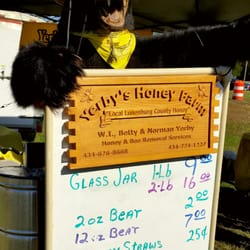 Yerby's Honey Farm
"Local Lunenburg County Honey"
W.T., Betty & Norman Yerby
Honey & Bee Removal Services
434-676-8668 434-774-1737
GLASS JAR 1 Lb 9 00
2 Lb 16 00
2 oz BEAR 2 00
12 oz BEAR 7 00
STRAWS 25¢